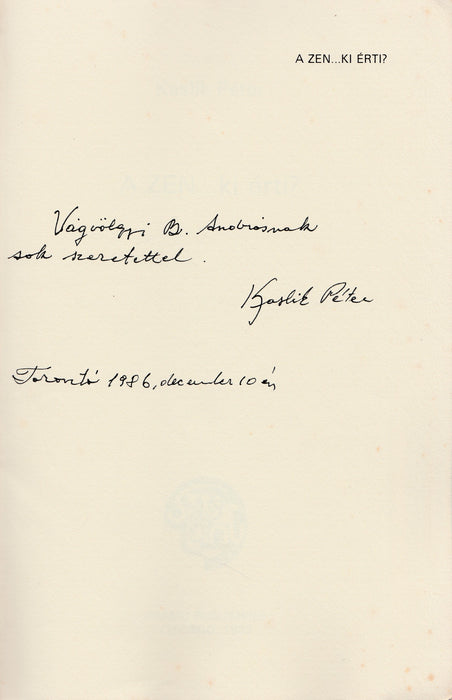 A ZEN...KI ÉRTI?
Vágvölgyi B. Andrásnak
sok szeretettel.
Kaslik Péter
Torontó 1986, december 10 én